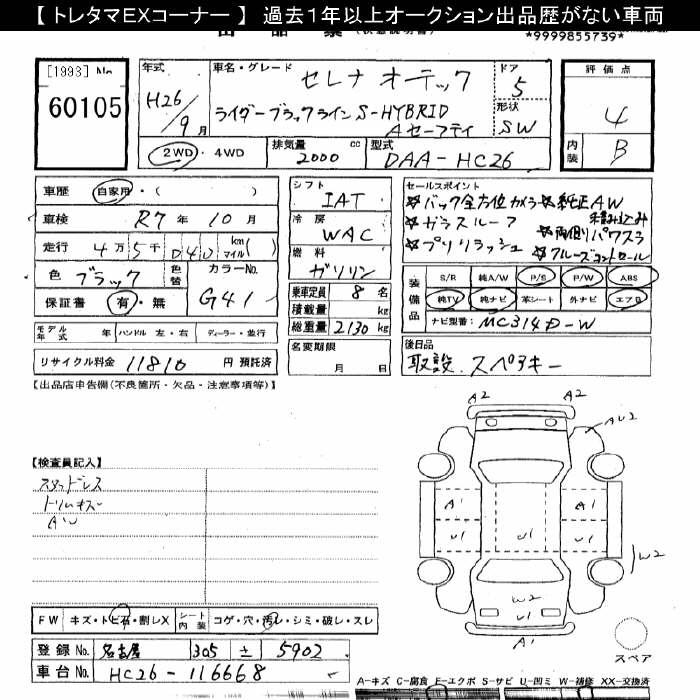 【 トレタマEXコーナー 】 過去1年以上オークション出品歴がない車両
*9999855739*
[1993] No
60105
年式
H26/9月
車名・グレード
セレナ オーテック
ライダーブラックライン S-HYBRID
Aセーフティ
ドア
5
形状
SW
評価点
4
内装
B
2WD ・ 4WD
排気量 2000 cc
型式 DAA-HC26
車歴 自家用・( )
車検 R7 年 10 月
走行 4万5千040 km マイル( )
色 ブラック 色替
カラーNo. G41
保証書 有・無
モデル年式 年 ハンドル 左・右 ディーラー・並行
リサイクル料金 11810 円 預託済
シフト
IAT
冷房
WAC
燃料
ガソリン
乗車定員 8 名
積載量 kg
総重量 2130 kg
名変期限
月 日
セールスポイント
☆バック全方位カメラ ☆純正AW
積み込み
☆ガラスルーフ ☆両側パワスラ
☆プリクラッシュ ☆クルーズコントロール
装備品
S/R 純A/W P/S P/W ABS
純TV 純ナビ 革シート 外ナビ エアB
ナビ型番: MC314D-W
後日品
取説、スペアキー
【出品店申告欄(不良箇所・欠品・注意事項等)】
【検査員記入】
スタッドレス
トリムキズ
AW
A2
A2
AU2
A1
U1
U1
A1
U1
W2
W2
U1
A1
スペア
FW キズ・トビ石・割レX
シート内装 コゲ・穴・汚レ・シミ・破レ・スレ
登録 No. 名古屋 305 ± 5902
車台 No. HC26-116668
A-キズ C-腐食 E-エクボ S-サビ U-凹ミ W-補修 XX-交換済